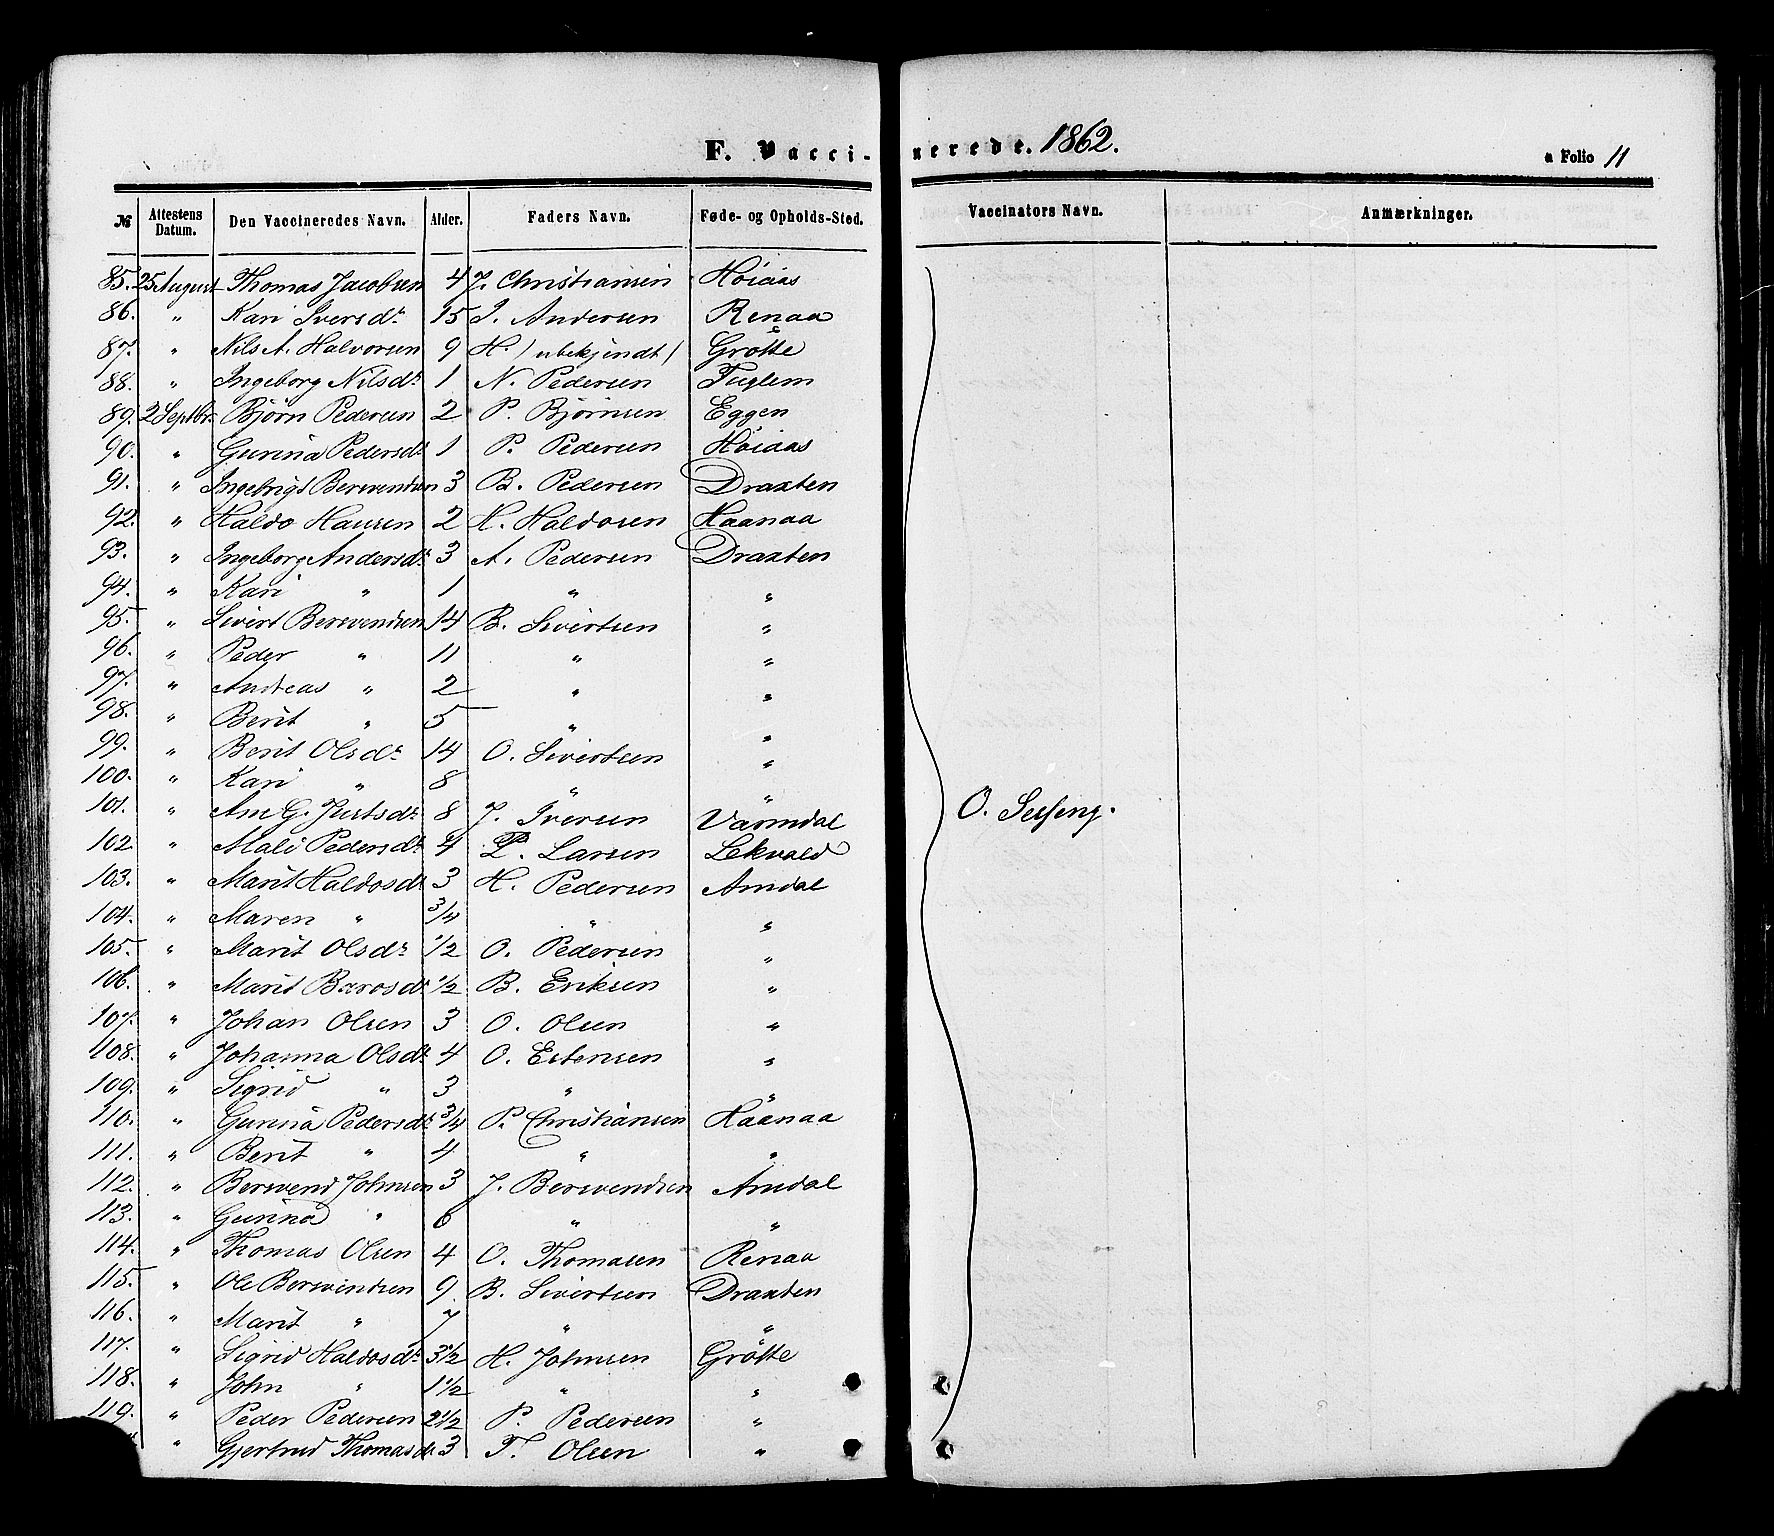 F. Vaccinerede. 1862.
a Folio 11
№ Attestens Datum. Den Vaccineredes Navn. Alder. Faders Navn. Føde- og Opholds-Sted. Vaccinators Navn. Anmærkninger.
85. 25 August Thomas Jacobsen 4 J. Christiansen Høiaas
86. " Kari Iversdr 15 I. Andersen Renaa
87. " Nils A. Halvorsen 9 H. / ubekjendt / Grötte
88. " Ingeborg Nilsdr 1 N. Pedersen Fuglem
89. 2 Septbr. Bjørn Pedersen 2 P. Bjørnsen Eggen
90. " Gurina Pedersdr 1 P. Pedersen Høiaas
91. " Ingebrigt Bersvendsen 3 B. Pedersen Draxten
92. " Haldo Hansen 2 H. Haldosen Haanaa
93. " Ingeborg Andersdr 3 A. Pedersen Draxten
94. " Kari " 1 " "
95. " Sivert Bersvendsen 14 B. Sivertsen "
96. " Peder " 11 " "
97. " Andreas " 2 " "
98. " Berit " 5 " "
99. " Berit Olsdr 14 O. Sivertsen "
100. " Kari " 8 " "
101. " Ane G. Jensdr 8 J. Iversen
102. " Mali Pedersdr 4 P. Larsen Lekvold
103. " Marit Haldosdr 3 H. Pedersen Amdal
104. " Maren " 3/4 " "
105. " Marit Olsdr 1/2 O. Pedersen "
106. " Marit Bærosdr 1/2 B. Eriksen "
107. " Johan Olsen 3 O. Olsen "
108. " Johanna Olsdr 4 O. Estensen "
109. " Sigrid " 3 " "
110. " Gurina Pedersdr 3/4 P. Christiansen Haanaa
111. " Berit " 4 " "
112. " Bersvend Johnsen 3 J. Bersvendsen Amdal
113. " Gurina " 6 " "
114. " Thomas Olsen 4 O. Thomasen Renaa
115. " Ole Bersvendsen 9 B. Sivertsen Draxten
116. " Marit " 7 " "
117. " Sigrid Haldosdr 3 1/2 H. Johnsen Grötte
118. " John " 1 1/2 " "
119. " Peder Pedersen 2 1/2 P. Pedersen "
" Gjertrud Thomasdr 3 T. Olsen "
O.